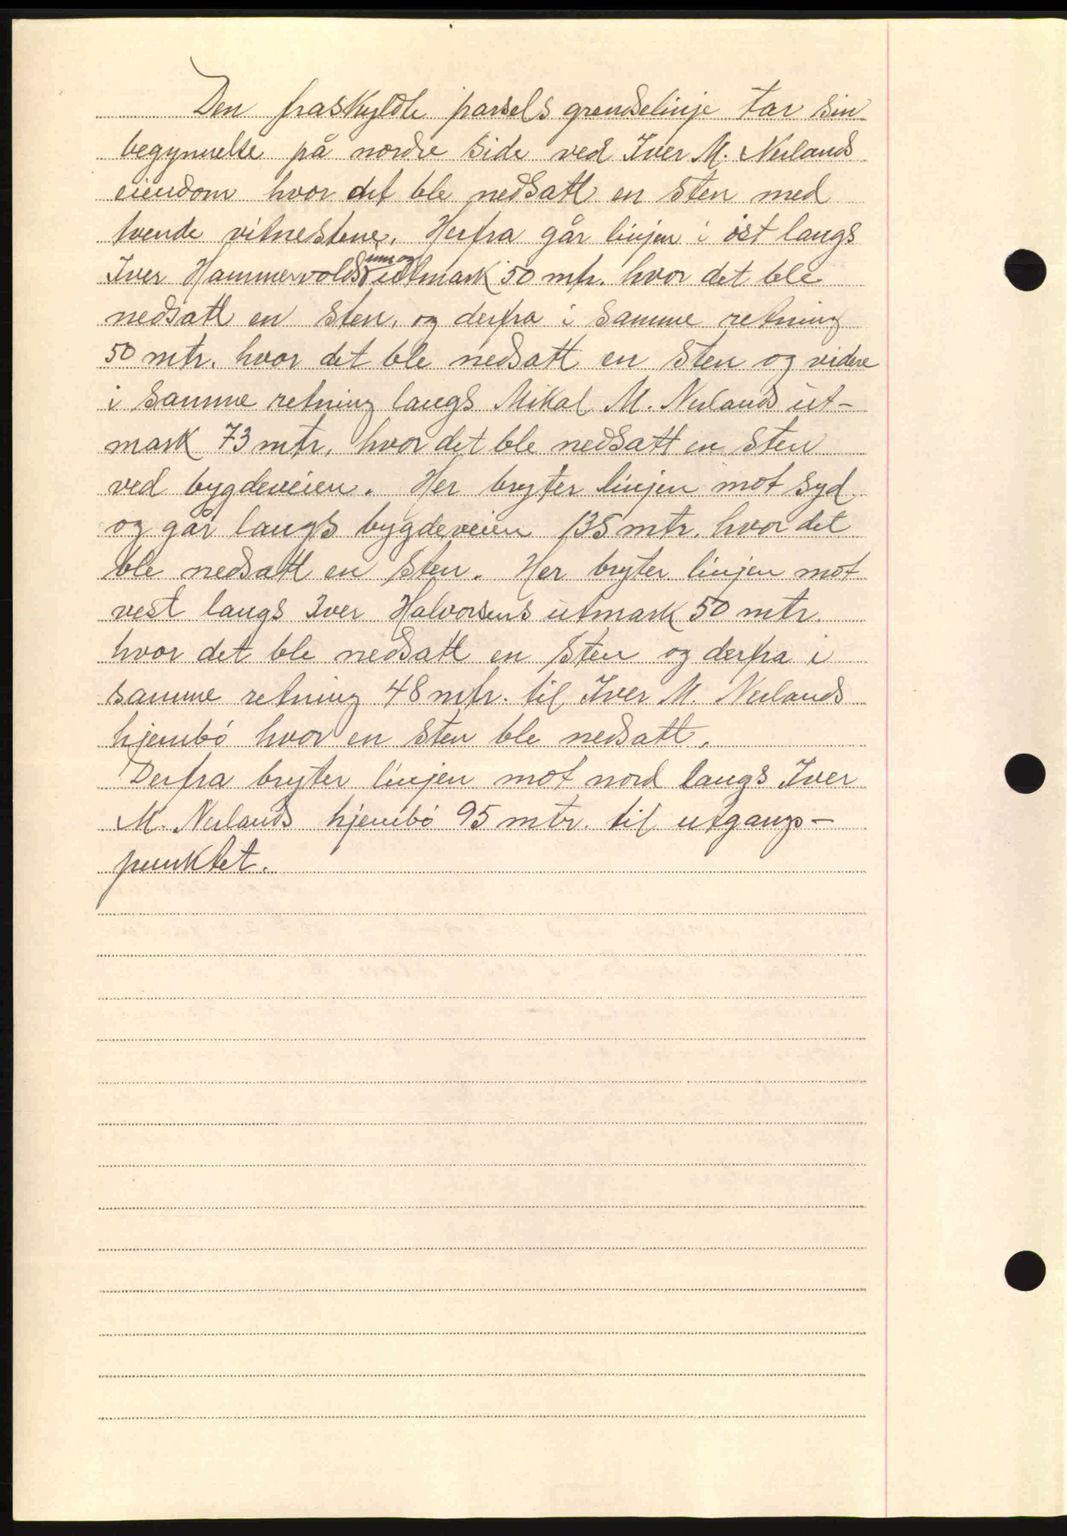 Den fraskyldte parsels grenselinje tar sin
begynnelse på nordre side ved Iver M. Neulands
eiendom hvor det ble nedsatt en sten med
tvende vitnestene. Herfra går linjen i öst langs
Iver Hammervolds inn og utmark 50 mtr. hvor det ble
nedsatt en sten, og derfra i samme retning
50 mtr. hvor det ble nedsatt en sten og videre
i samme retning langs Mikal M. Neulands ut-
mark 73 mtr. hvor det ble nedsatt en sten
ved bygdeveien. Her bryter linjen mot syd
og går langs bygdeveien 135 mtr. hvor det
ble nedsatt en sten. Her bryter linjen mot
vest langs Iver Halvorsens utmark 50 mtr.
hvor det ble nedsatt en sten og derfra i
samme retning 48 mtr. til Iver M. Neulands
hjembö hvor en sten ble nedsatt.
Derfra bryter linjen mot nord langs Iver
M. Neulands hjembö 95 mtr. til utgangs-
punktet.